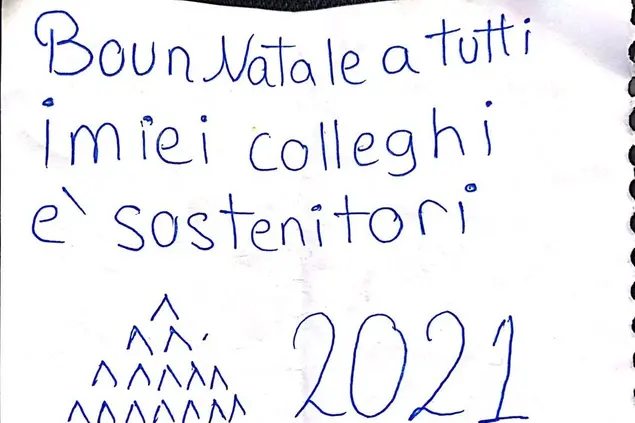 Boun Natale a tutti
i miei colleghi
e' sostenitori
2021